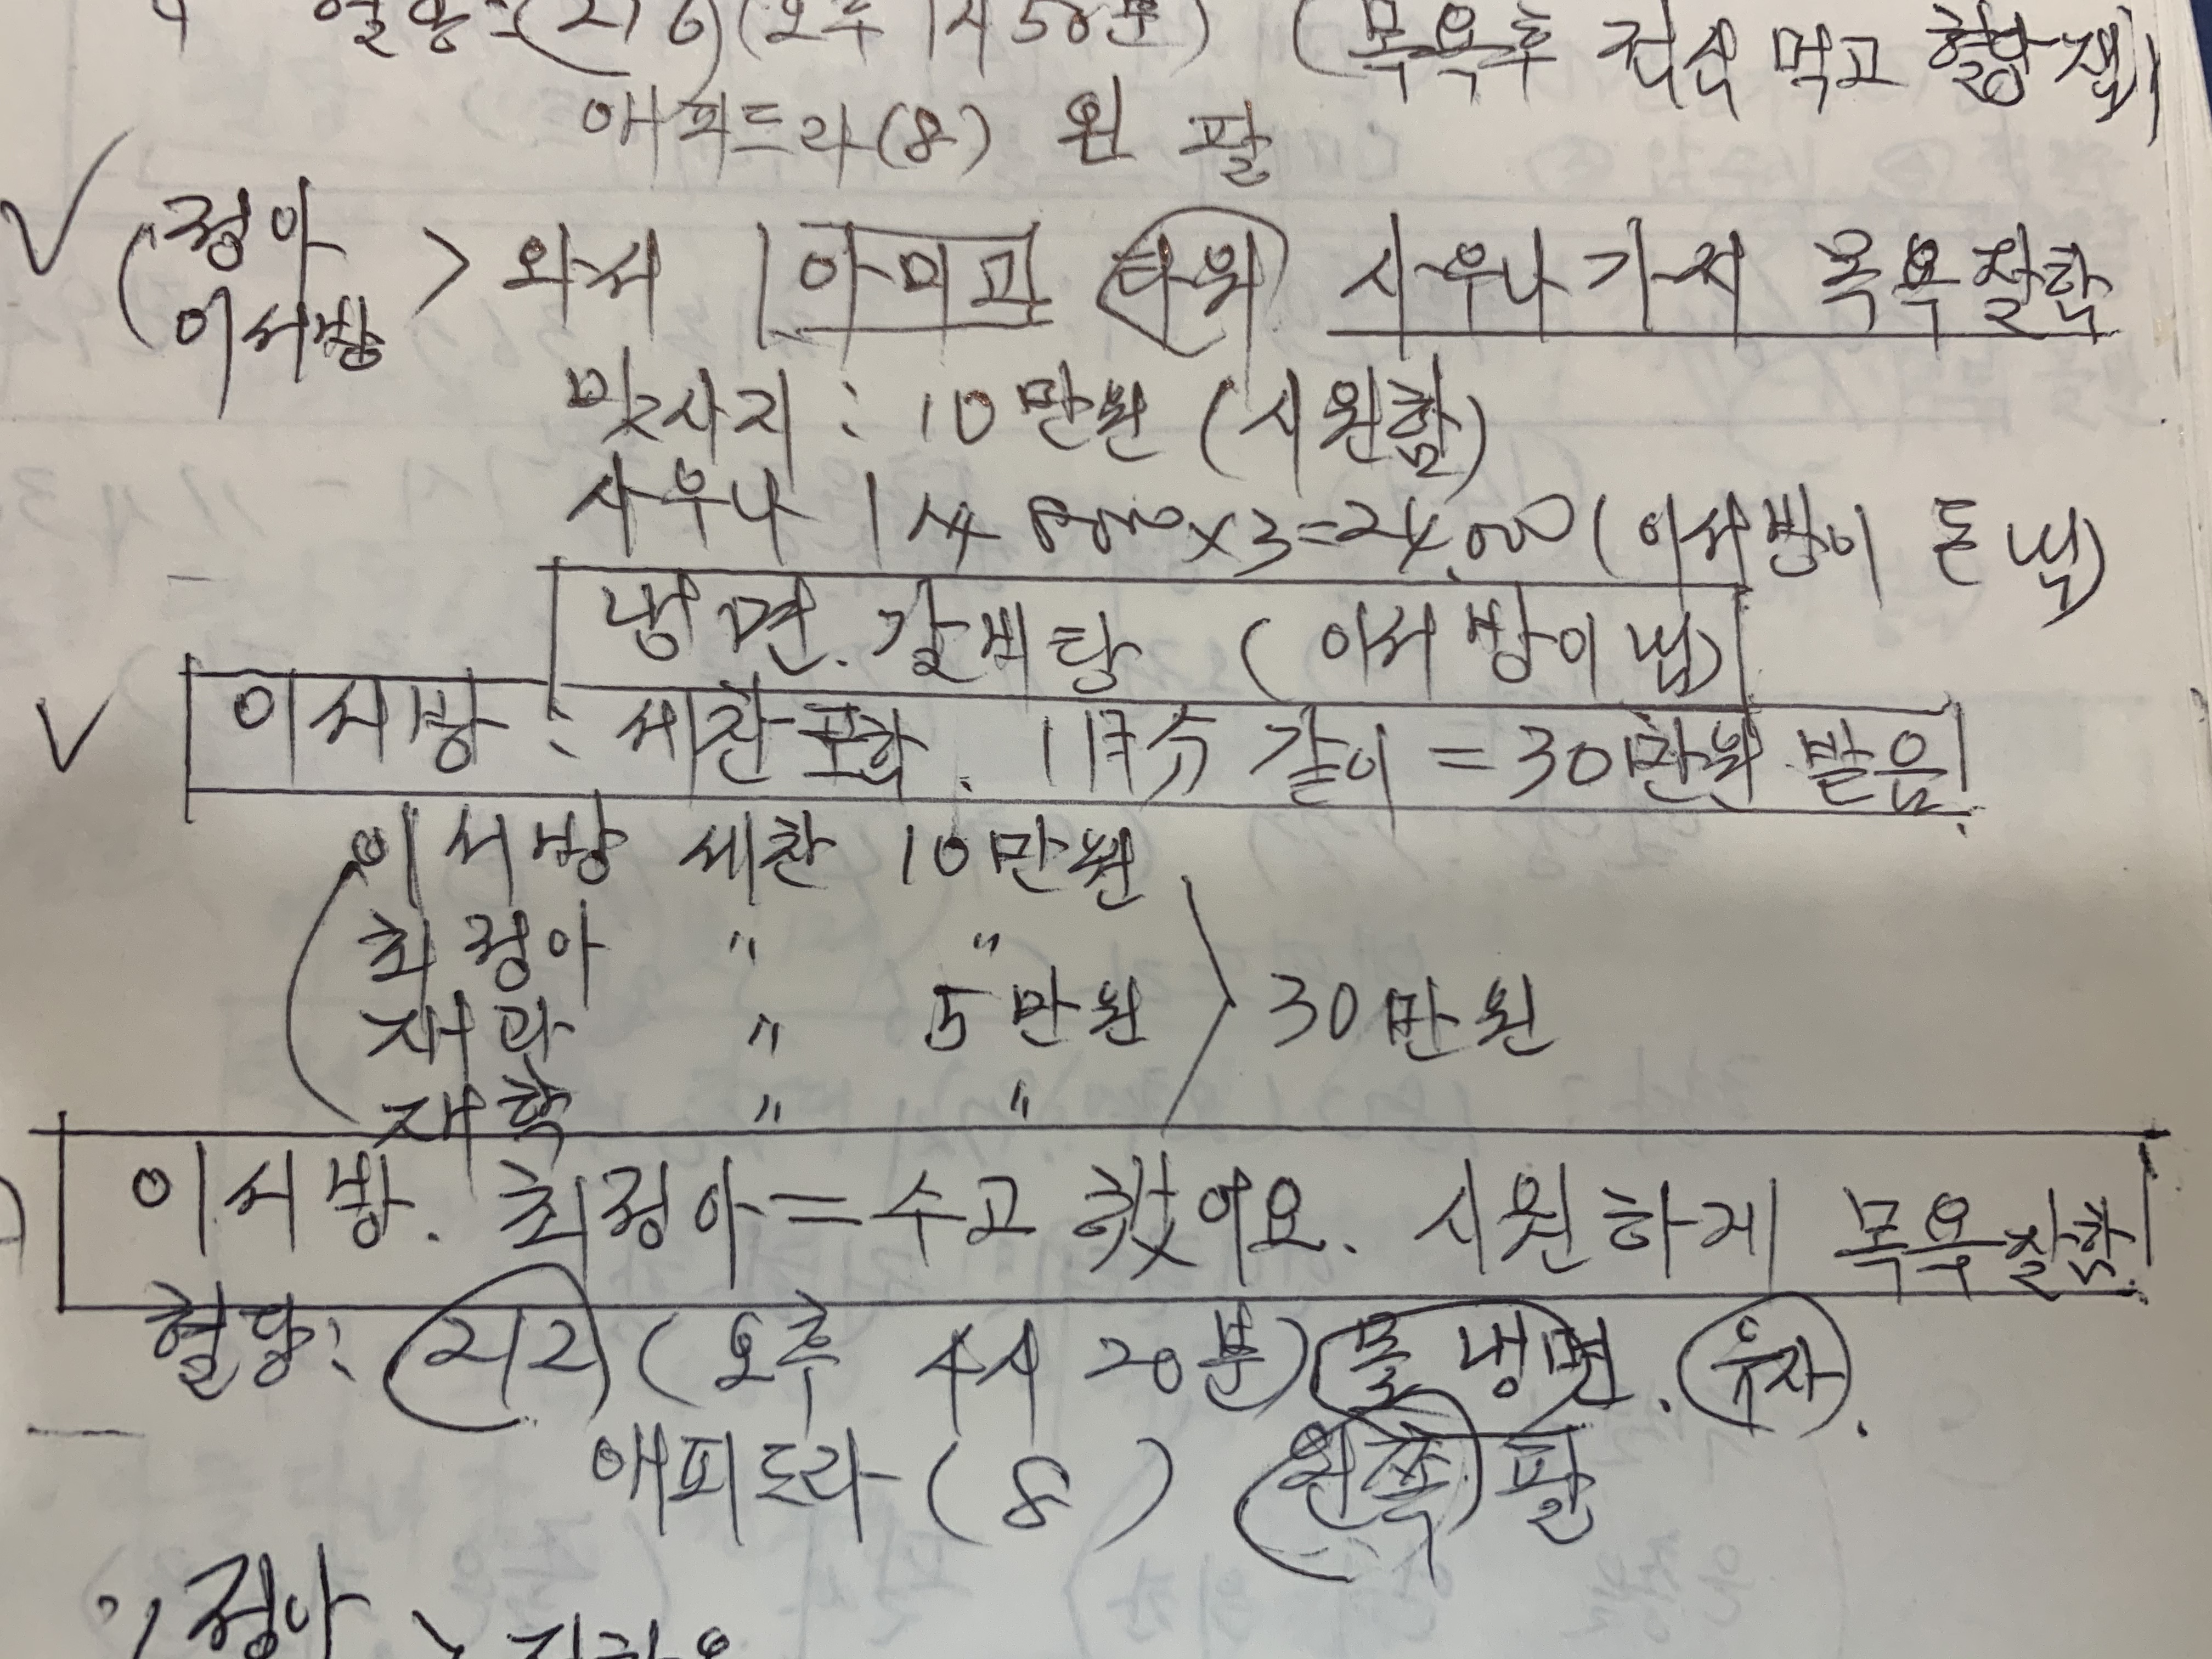 혈당: (216) (오후 1시 50분) (목욕후 점심 먹고 혈당 잼)
애피드라(8) 왼 팔
✓ (정아 이서방 > 와서 아미고 타워 사우나 가서 목욕 잘함
맛사지: 10만원 (시원함)
사우나 8000×3=24,000 (이서방이 돈 냄)
냉면. 갈비탕 (이서방이 냄)
✓ 이서방: 세찬 같이 = 30만원 받음
이서방 세찬 10만원
최정아 〃 〃
〃 5만원 30만원
재학 〃 〃
이서방. 최정아 = 수고 했어요. 시원하게 목욕 잘함
혈당: 212 (오후 4시 20분) 물냉면. 유자.
애피드라(8) 왼쪽 팔
정아